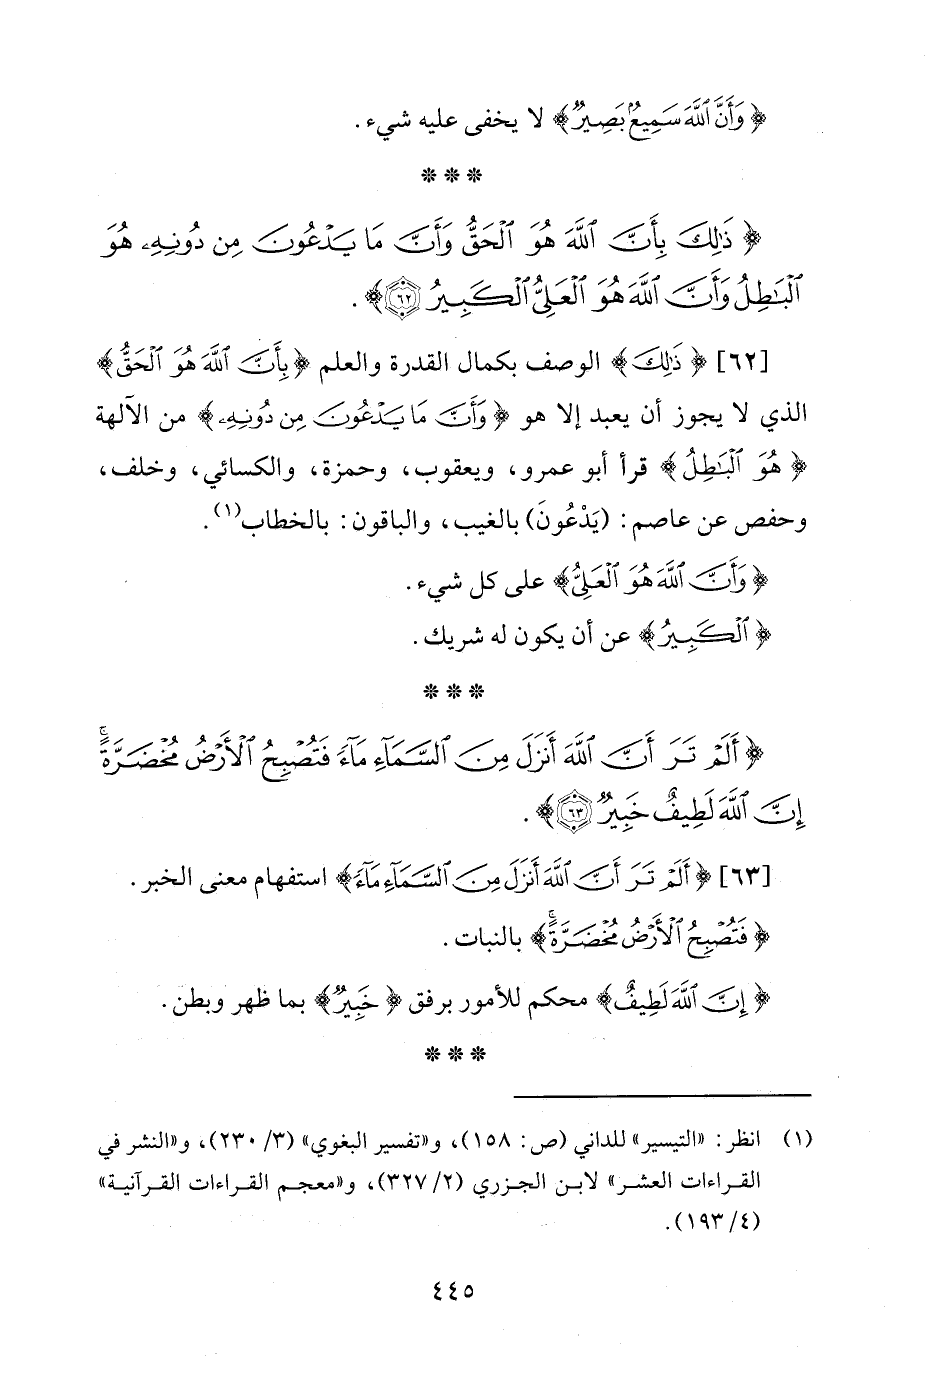 ﴿ وَأَنَّ ٱللَّهَ سَمِيعٌۢ بَصِيرٌ ﴾ لا يخفى عليه شيء .
* * *
﴿ ذَٰلِكَ بِأَنَّ ٱللَّهَ هُوَ ٱلْحَقُّ وَأَنَّ مَا يَدْعُونَ مِن دُونِهِۦ هُوَ
ٱلْبَٰطِلُ وَأَنَّ ٱللَّهَ هُوَ ٱلْعَلِيُّ ٱلْكَبِيرُ ٦٢ ﴾ .
[٦٢] ﴿ ذَٰلِكَ ﴾ الوصف بكمال القدرة والعلم ﴿ بِأَنَّ ٱللَّهَ هُوَ ٱلْحَقُّ ﴾
الذي لا يجوز أن يعبد إلا هو ﴿ وَأَنَّ مَا يَدْعُونَ مِن دُونِهِۦ ﴾ من الآلهة
﴿ هُوَ ٱلْبَٰطِلُ ﴾ قرأ أبو عمرو، ويعقوب، وحمزة، والكسائي، وخلف،
وحفص عن عاصم : (يَدْعُونَ) بالغيب، والباقون : بالخطاب(١).
﴿ وَأَنَّ ٱللَّهَ هُوَ ٱلْعَلِيُّ ﴾ على كل شيء .
﴿ ٱلْكَبِيرُ ﴾ عن أن يكون له شريك .
* * *
﴿ أَلَمْ تَرَ أَنَّ ٱللَّهَ أَنزَلَ مِنَ ٱلسَّمَآءِ مَآءً فَتُصْبِحُ ٱلْأَرْضُ مُخْضَرَّةً ۚ
إِنَّ ٱللَّهَ لَطِيفٌ خَبِيرٌ ٦٣ ﴾ .
[٦٣] ﴿ أَلَمْ تَرَ أَنَّ ٱللَّهَ أَنزَلَ مِنَ ٱلسَّمَآءِ مَآءً ﴾ استفهام معنى الخبر .
﴿ فَتُصْبِحُ ٱلْأَرْضُ مُخْضَرَّةً ۚ ﴾ بالنبات .
﴿ إِنَّ ٱللَّهَ لَطِيفٌ ﴾ محكم للأمور برفق ﴿ خَبِيرٌ ﴾ بما ظهر وبطن .
* * *
(١) انظر : «التيسير» للداني (ص: ١٥٨)، و«تفسير البغوي» (٣/ ٢٣٠)، و«النشر في
القراءات العشر» لابن الجزري (٢/ ٣٢٧)، و«معجم القراءات القرآنية»
(٤/ ١٩٣).
٤٤٥